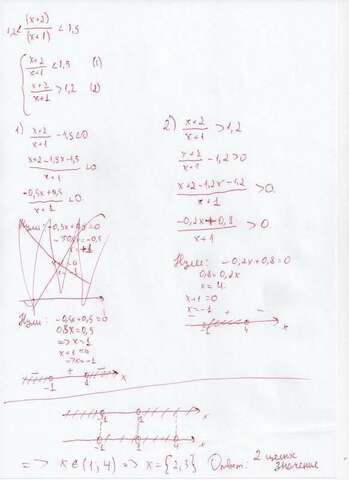 1,2 < (x+2)/(x+1) < 1,5
{ (x+2)/(x+1) < 1,5 (1)
(x+2)/(x+1) > 1,2 (2)
1) (x+2)/(x+1) - 1,5 < 0
(x+2-1,5x-1,5)/(x+1) < 0
(-0,5x+0,5)/(x+1) < 0
Нули: -0,5x+0,5=0
0,5x=0,5
=> x=1
x+1≠0
x=-1
- + -
-1 1 x
2) (x+2)/(x+1) > 1,2
(x+2)/(x+1) - 1,2 > 0
(x+2-1,2x-1,2)/(x+1) > 0
(-0,2x+0,8)/(x+1) > 0
Нули: -0,2x+0,8=0
0,8=0,2x
x=4
x+1=0
x=-1
- + -
-1 4 x
-1 1 x
-1 1 4 x
=> x∈(1;4) => x={2,3} Ответ: 2 целых
значения